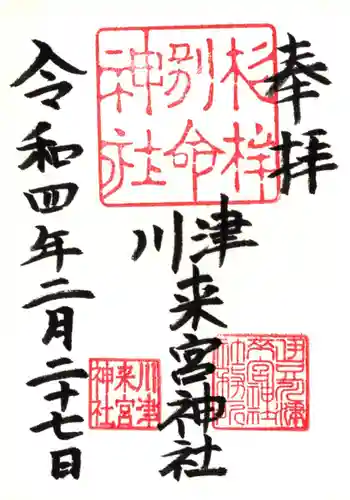 奉拝
杉桙
別命
神社
川津
来宮神社
川津
来宮
神社
令和四年二月二十七日